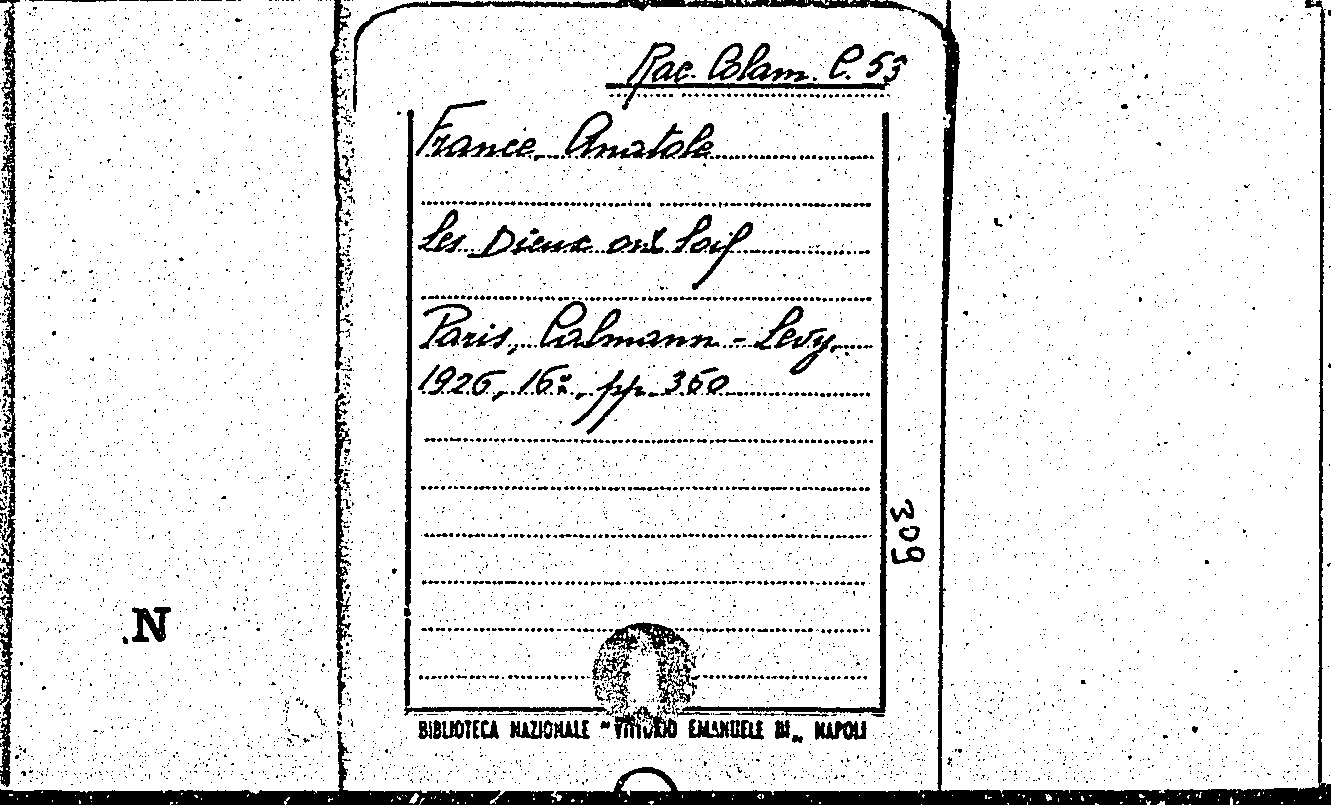 Rac. Colam. C. 53
France, Anatole
Les Dieux ont soif
Paris, Calmann - Levy,
1926, 16º, pp. 360
309
N
BIBLIOTECA NAZIONALE "VITTORIO EMANUELE III„ NAPOLI